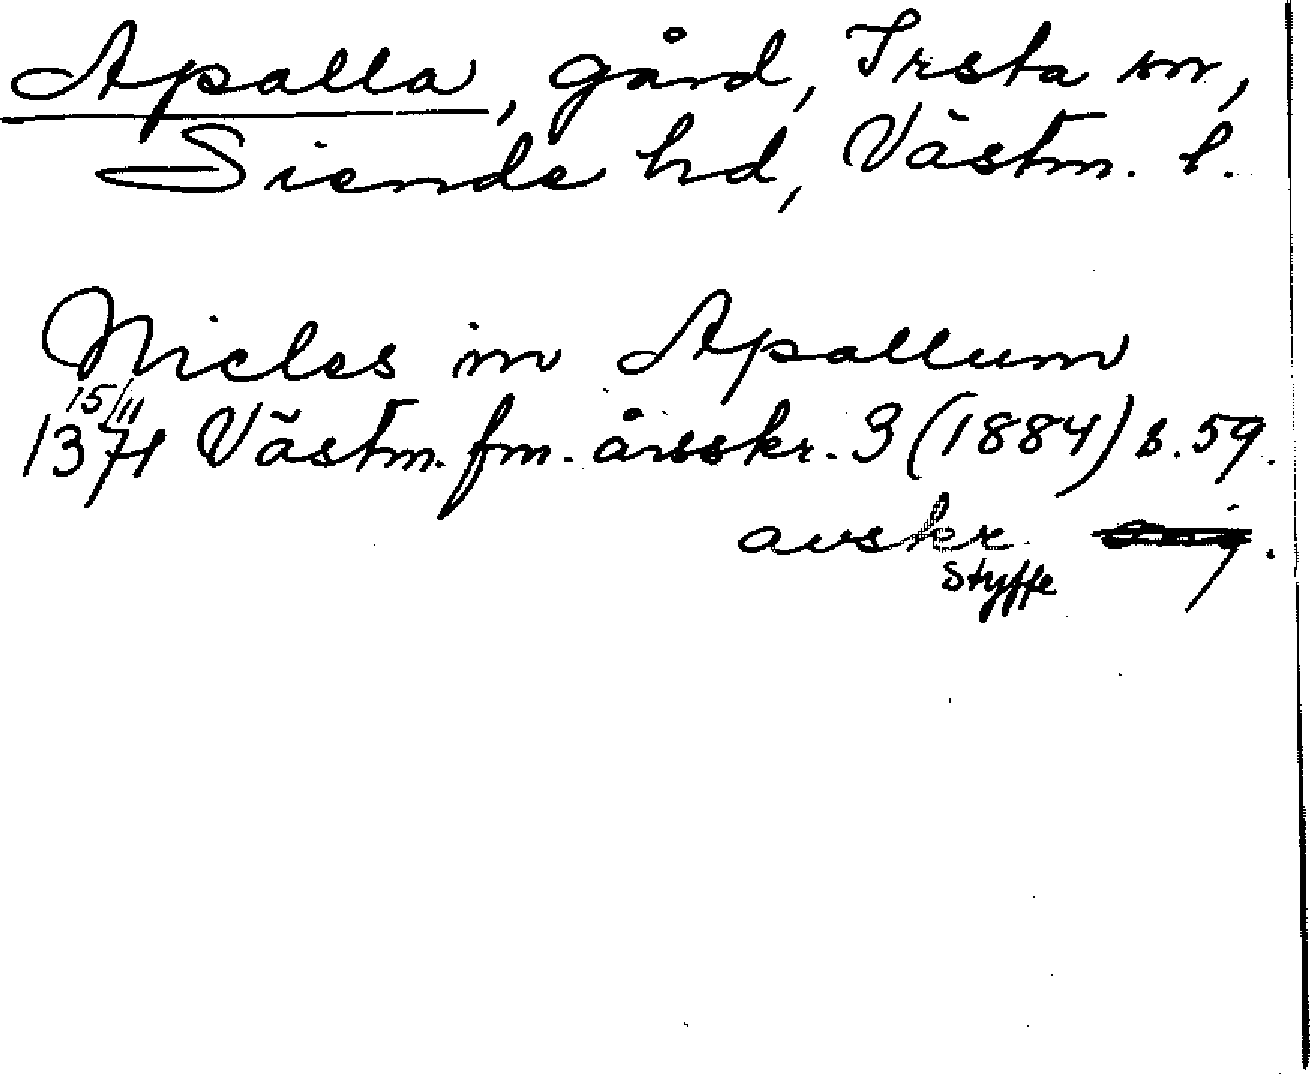 Apalla, gård, Irsta sn,
Siende hd, Västm. l.
Niclis in Apallum
15/11
1371 Västm. fm. årsskr. 3 (1884) s. 59.
avskr.
Styffe